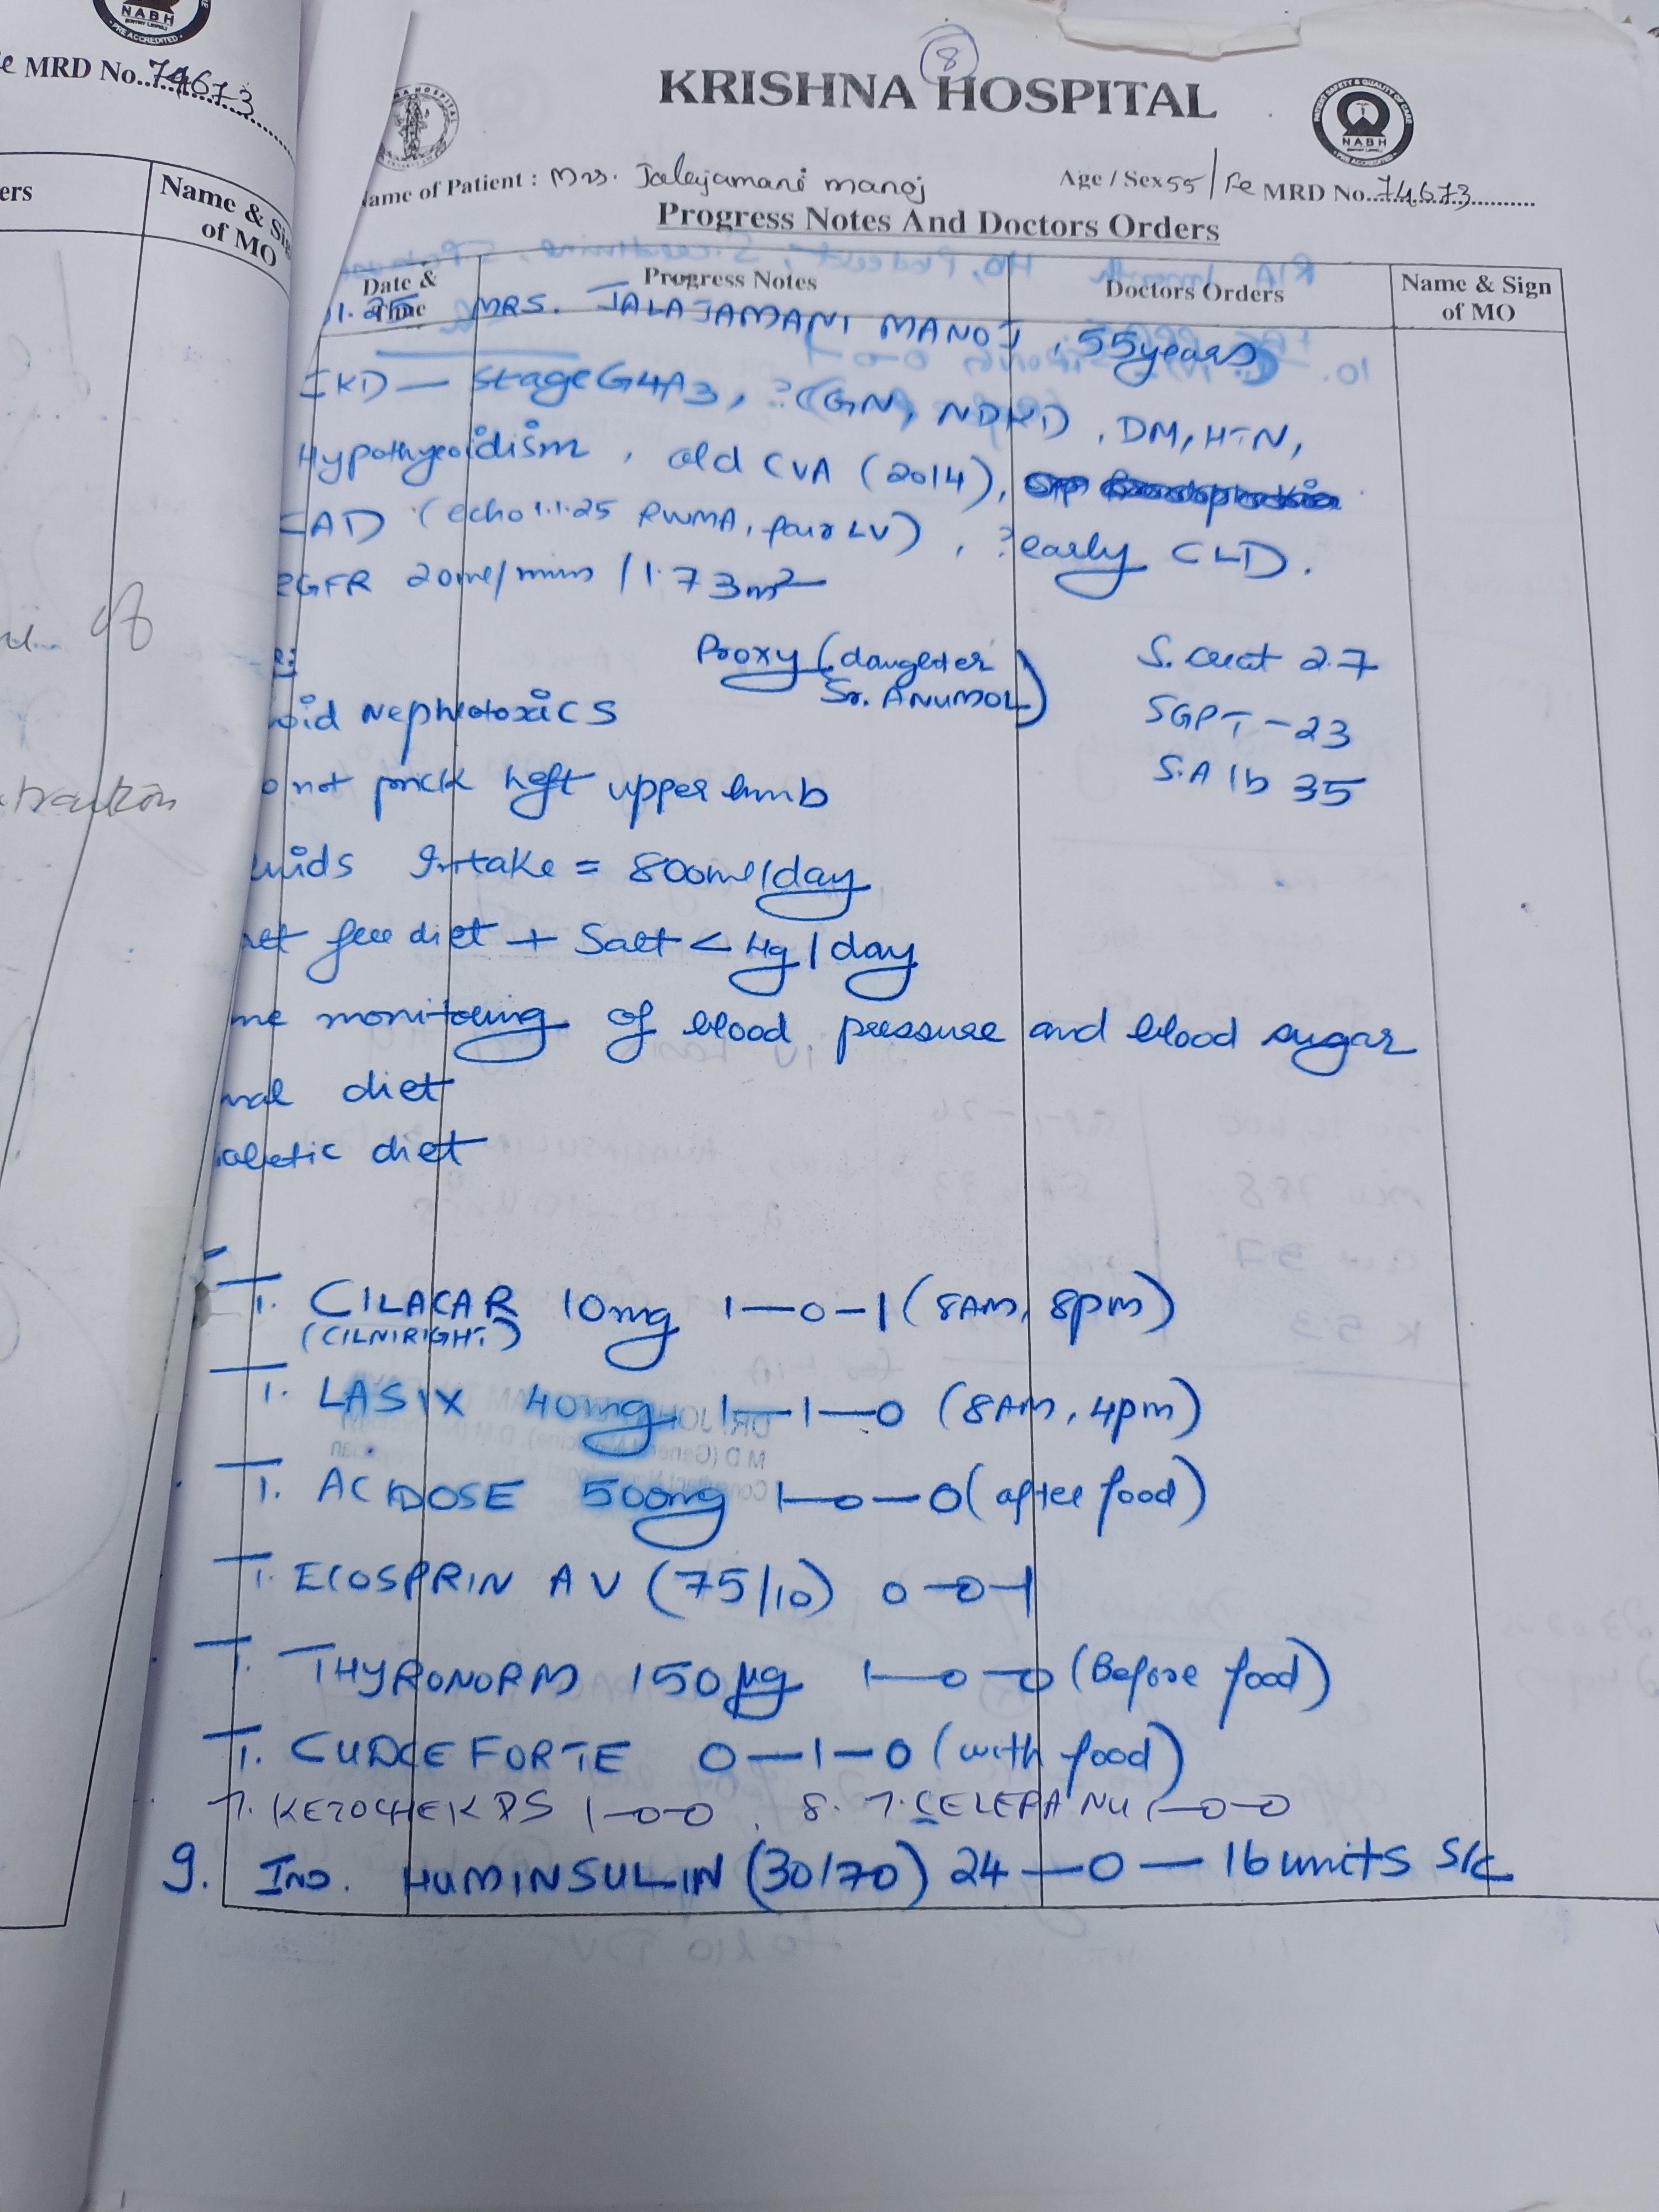 NABH
PRE ACCREDITED
MRD No..74673
ers
Name & Sig
of MO
8
KRISHNA HOSPITAL
NABH
ame of Patient : Mrs. Jalajamani manoj Age / Sex 55/Fe MRD No..74673
Progress Notes And Doctors Orders
Date & Time
Progress Notes
Doctors Orders
Name & Sign of MO
1.25 MRS. JALAJAMANI MANOJ, 55years
CKD — Stage G4A3, ?(GN, NDKD), DM, HTN,
Hypothyroidism, old CVA (2014),
CAD (echo 1.1.25 RWMA, fair LV), ?early CLD.
eGFR 20ml/mins/1.73m²
Proxy (daughter
Sr. ANUMOL)
S. creat 2.7
SGPT - 23
S.Alb 35
oid Nephrotoxics
o not prick left upper limb
uids Intake = 800ml/day
free diet + Salt < 4g/day
me monitoring of blood pressure and blood sugar
nal diet
abetic diet
T. CILACAR 10mg 1—0—1 (8AM, 8pm)
(CILNIRIGHT)
T. LASIX 40mg 1—1—0 (8AM, 4pm)
T. ACIDOSE 500mg 1—0—0 (after food)
T. ECOSPRIN AV (75/10) 0—0—1
T. THYRONORM 150µg 1—0—0 (Before food)
T. CUDCE FORTE 0—1—0 (with food)
7. KETOCHEK DS 1-0-0. 8. T. CELEPA NU 1-0-0
9. INJ. HUMINSULIN (30/70) 24—0—16 units S/C